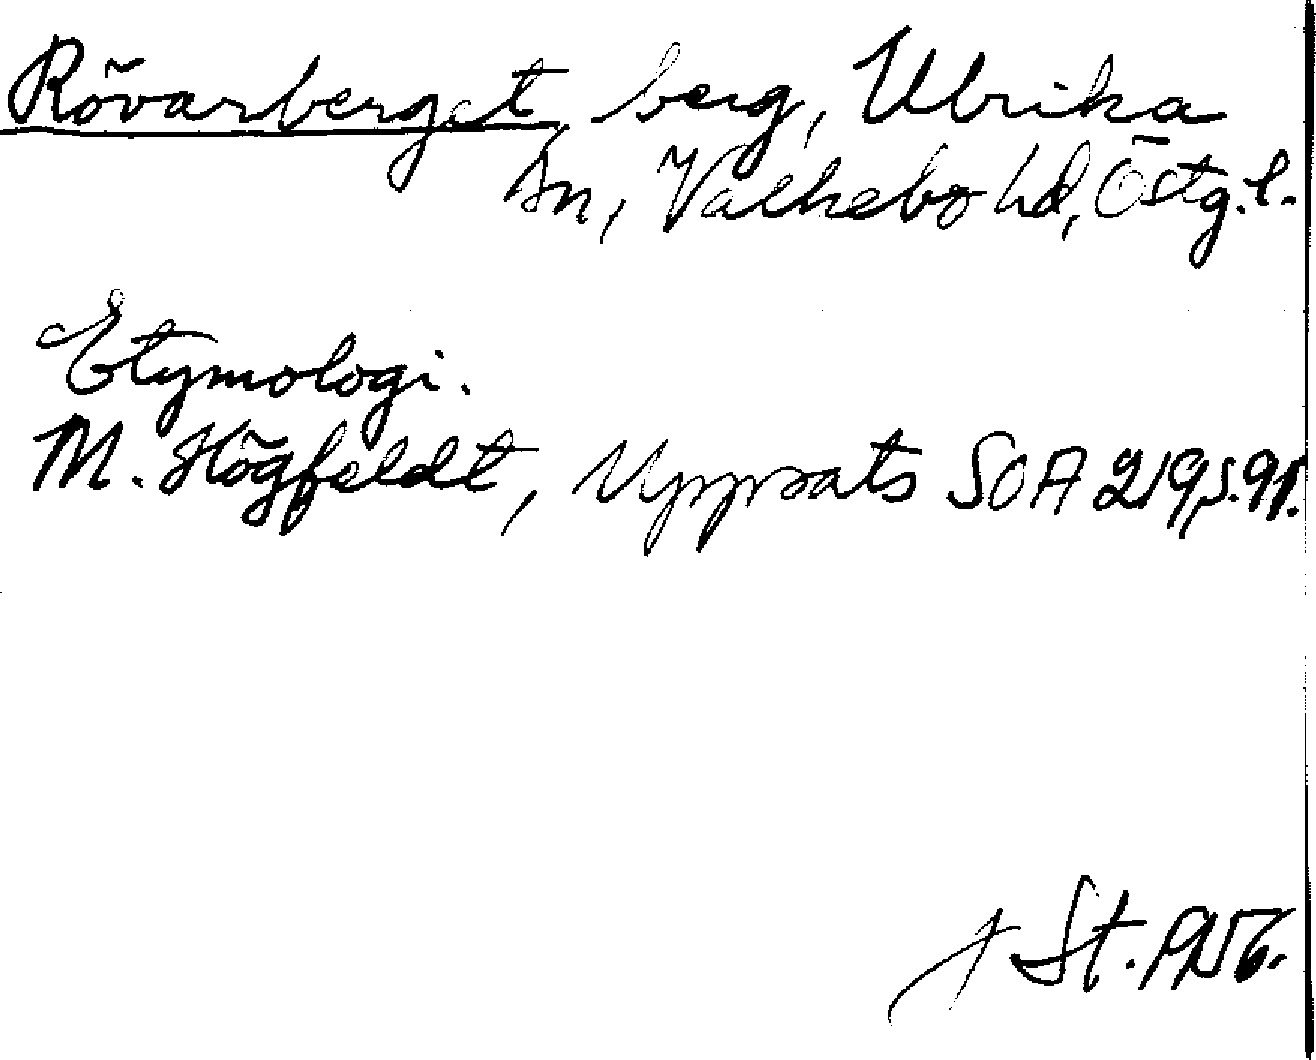 Rövarberget, berg, Ulrika
sn, Valkebo hd, Östg.l.
Etymologi.
M. Högfeldt, Uppsats SOA 219, s. 91.
St.